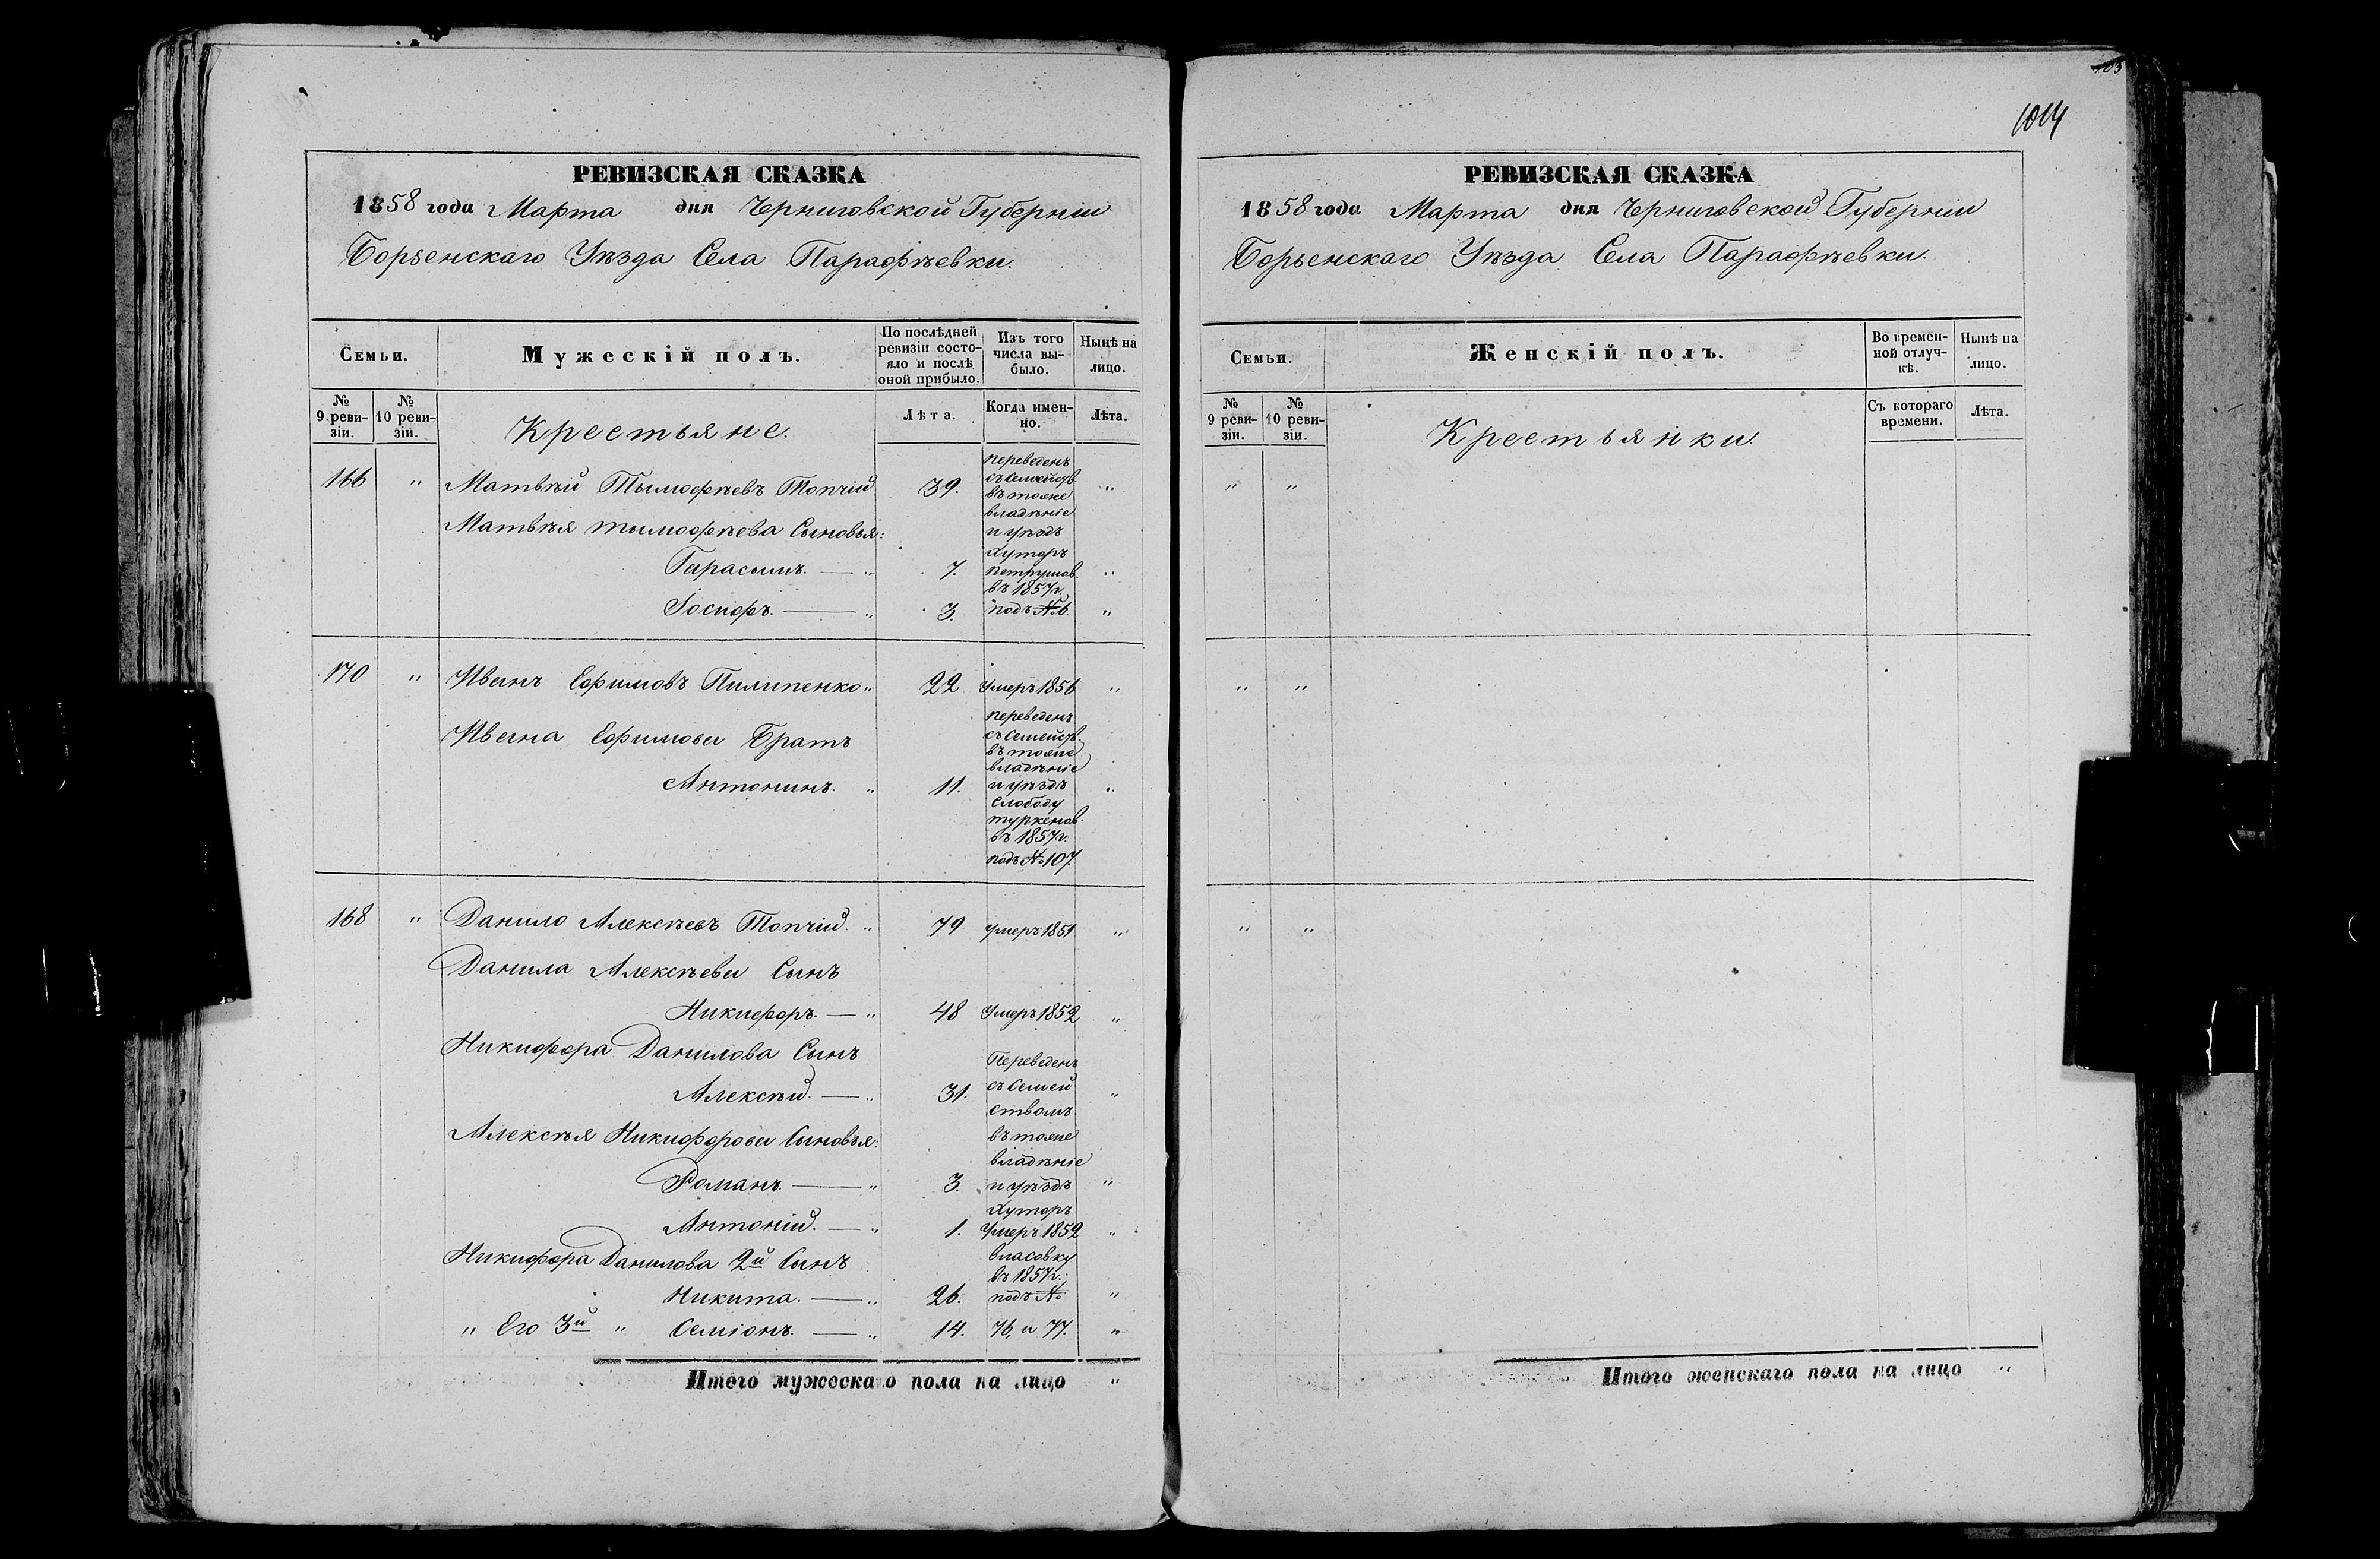 РЕВИЗСКАЯ СКАЗКА
1858 года Марта дня Черниговской Губерніи
Борзенскаго Уѣзда Села Парафѣевки.
Семьи. Мужескій полъ. По послѣдней ревизіи состояло и послѣ оной прибыло. Изъ того числа выбыло. Нынѣ на лицо.
№ 9 ревизіи. № 10 ревизіи. Крестьяне. Лѣта. Когда именно. Лѣта.
166 " Матвѣй Тымофѣевъ Топчій 39. переведенъ съ Семейств. въ тоже владѣніе и уѣздъ Хуторъ петрушов. въ 1857г. подъ №6. "
Матвѣя тымофѣева Сыновья:
Гарасымъ. — " 7. "
Іосифъ. — " 3. "
170 " Иванъ Ефимовъ Пилипенко " 22 Умеръ 1856 "
Ивана Ефимова Братъ
Антонинъ. " 11. переведенъ съ Семейств. въ тоже владѣніе и уѣздъ Слободу туркенов. въ 1857г. подъ №107. "
168 " Данило Алексѣевъ Топчій. " 79 умеръ 1851 "
Данила Алексѣева Сынъ
Никифоръ. — " 48 Умеръ 1852 "
Никифора Данилова Сынъ
Алексѣй. — " 31. Переведенъ съ Семействомъ въ тоже владѣніе и уѣздъ Хуторъ "
Алексѣя Никифорова Сыновья:
Романъ. — " 3. "
Антоній. — " 1. Умеръ 1852 "
Никифора Данилова 2й Сынъ власовку въ 1857г.
Никита. — " 26. подъ № "
" Его 3й " Семіонъ. — " 14. 76, и 77. "
Итого мужескаго пола на лицо "
103
1014
РЕВИЗСКАЯ СКАЗКА
1858 года Марта дня Черниговской Губерніи
Борзенскаго Уѣзда Села Парафѣевки.
Семьи. Женскій полъ. Во временной отлучкѣ. Нынѣ на лицо.
№ 9 ревизіи. № 10 ревизіи. Крестьянки. Съ котораго времени. Лѣта.
" "
" "
" "
Итого женскаго пола на лицо "